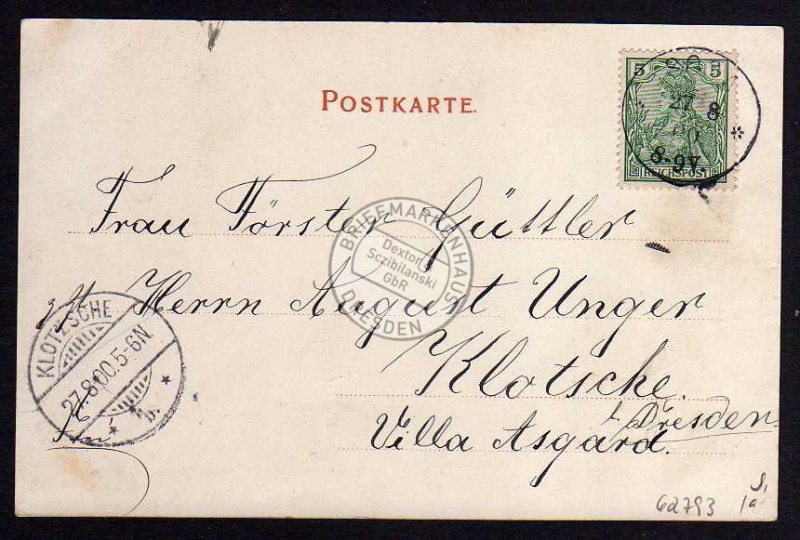 POSTKARTE.
5 5
27 8
00
8-9V
REICHSPOST
Frau Förster Güttler
BRIEFMARKENHAUS
Dexton
Sczibilanski
GbR
DRESDEN
Herrn August Unger
KLOTZSCHE
27.8.00.5-6N.
b.
Klotsche.
b. Dresden
Villa Asgard.
62793
1a